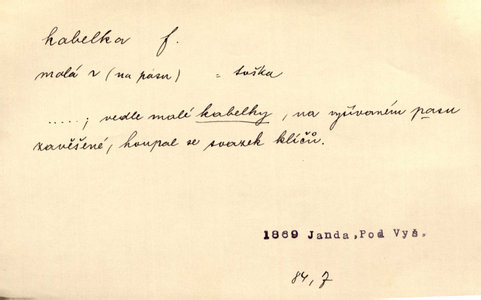 kabelka f.
malá 2 (na pásu) = taška
.....; vedle malé kabelky, na vyšívaném pasu
zavěšené, houpal se svazek klíčů.
1869 Janda, Pod Vyš.
84, 7